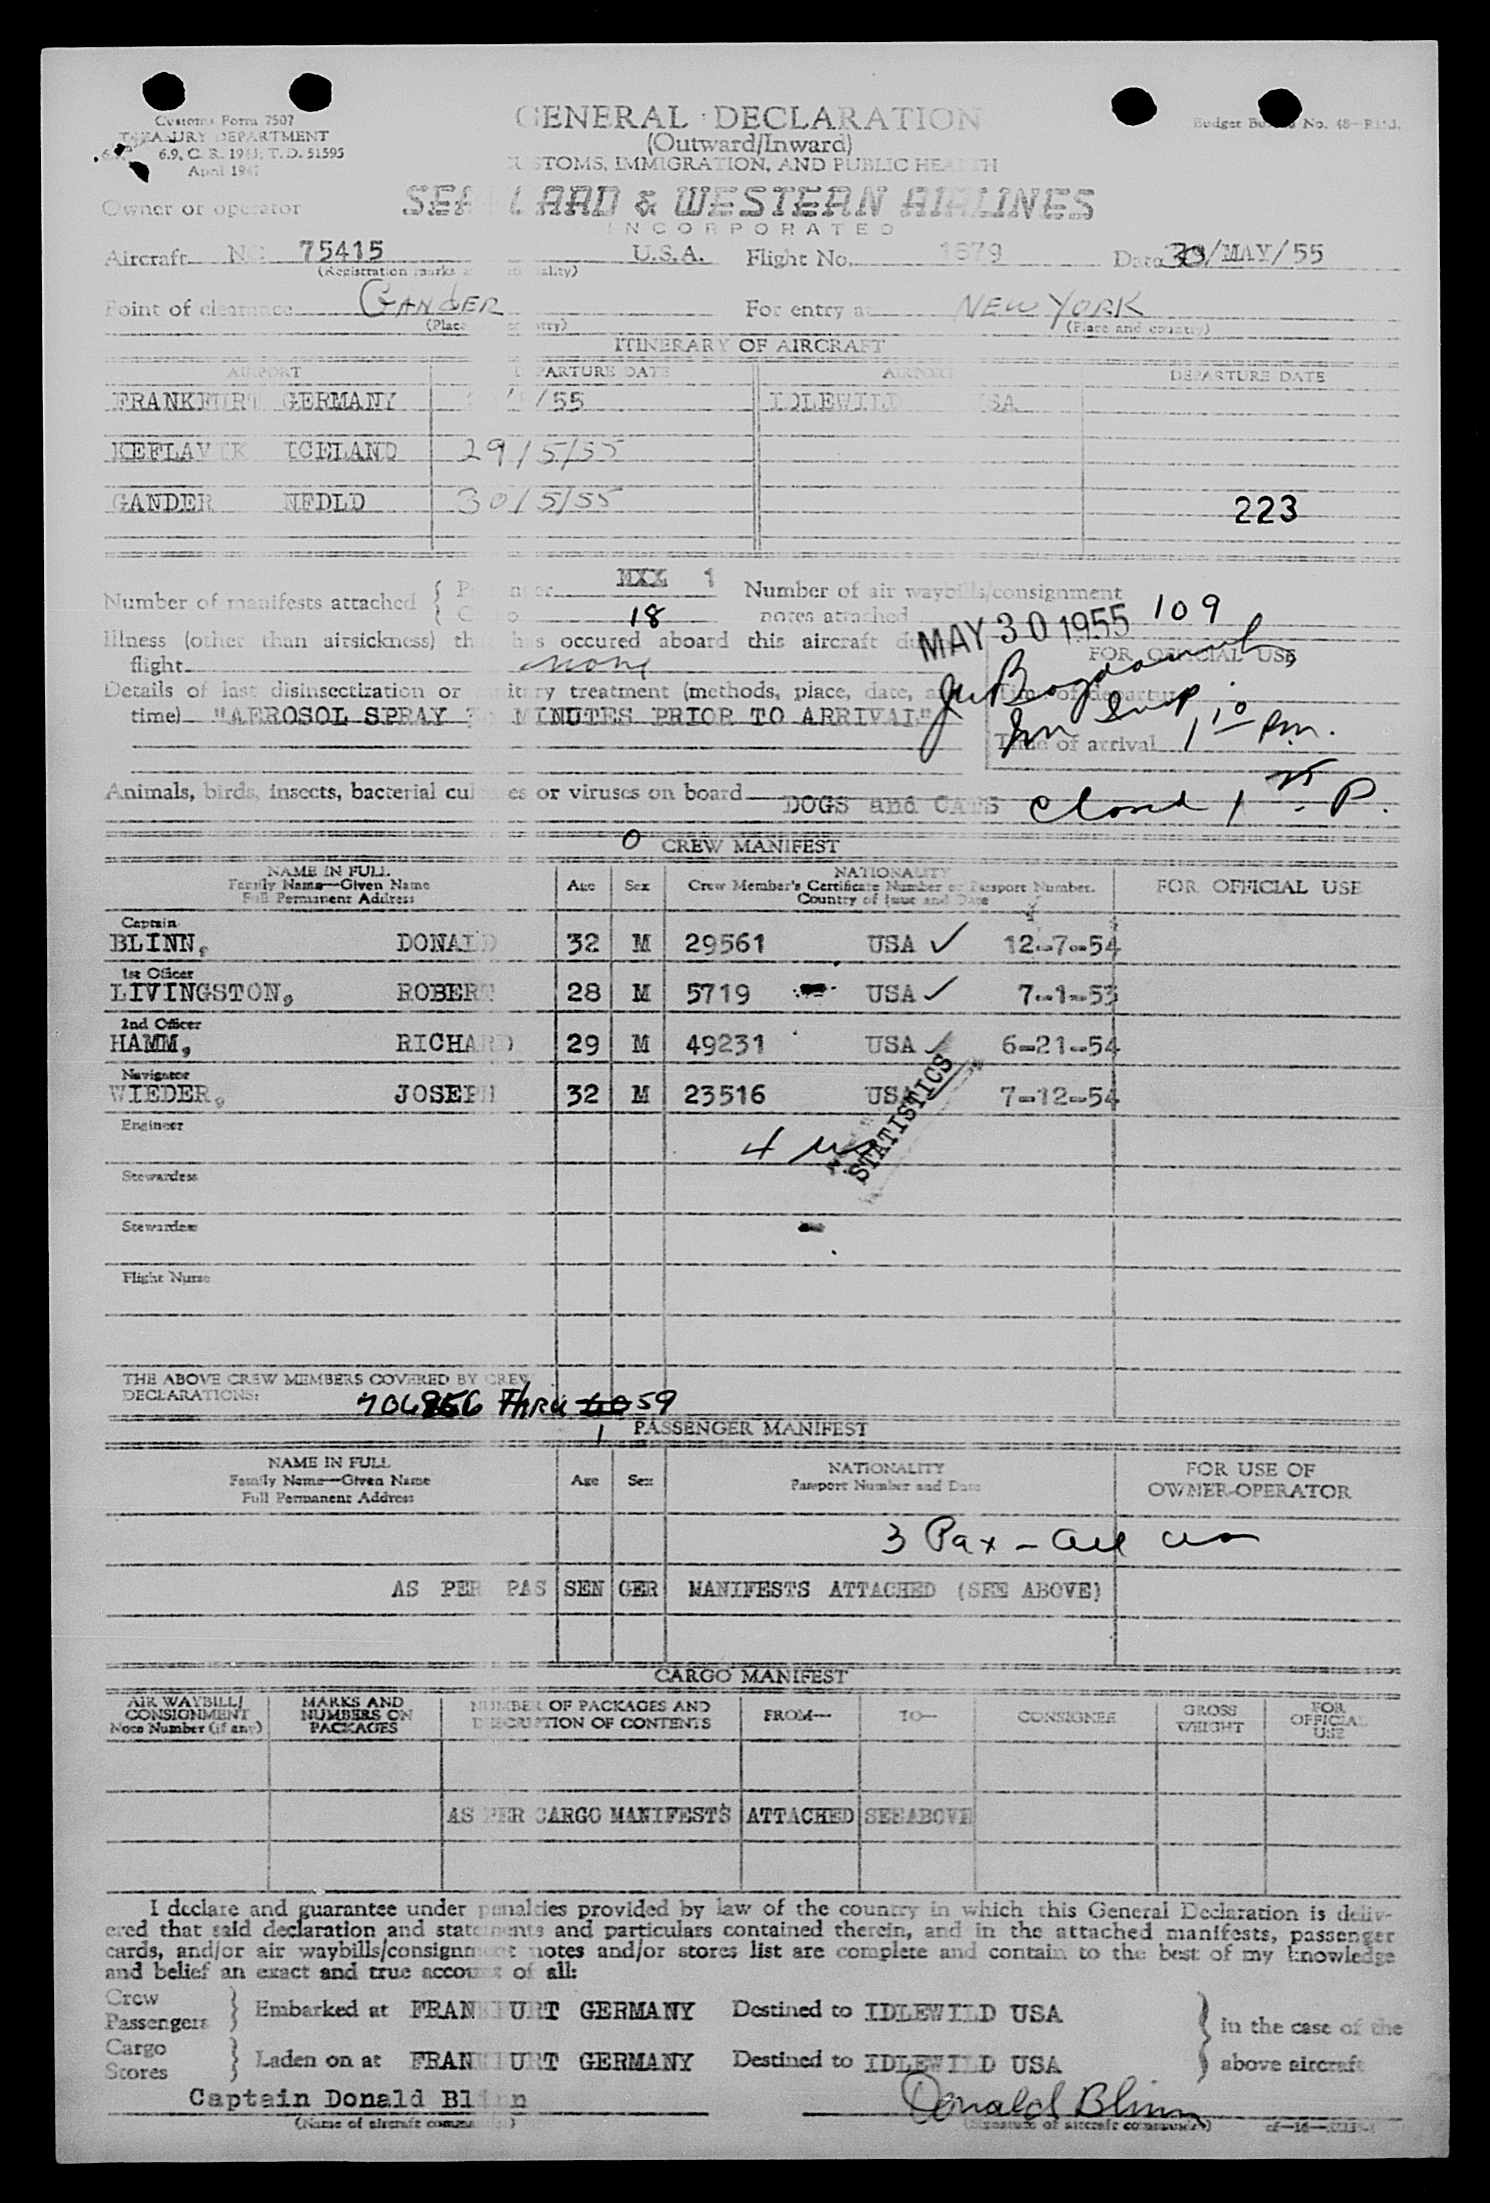 Customs Form 7507
TREASURY DEPARTMENT
6.9, C. R. 1943; T. D. 51595
April 1947
GENERAL DECLARATION
(Outward/Inward)
CUSTOMS, IMMIGRATION, AND PUBLIC HEALTH
Budget Bureau No. 48-
Owner or operator SEABOARD & WESTERN AIRLINES
INCORPORATED
Aircraft NC 75415 U.S.A. Flight No. 1679 Date 30/MAY/55
(Registration marks and nationality)
Point of clearance GANDER For entry at NEW YORK
(Place and country) (Place and country)
ITINERARY OF AIRCRAFT
AIRPORT DEPARTURE DATE AIRPORT DEPARTURE DATE
FRANKFURT GERMANY /55 IDLEWILD USA
KEFLAVIK ICELAND 29/5/55
GANDER NFDLD 30/5/55
223
Number of manifests attached { Passenger MXX 1
Cargo 18
Number of air waybills/consignment
notes attached 109
MAY 30 1955
Illness (other than airsickness) that has occured aboard this aircraft during
flight none
FOR OFFICIAL USE
Details of last disinsectization or sanitary treatment (methods, place, date, and
time) "AEROSOL SPRAY 30 MINUTES PRIOR TO ARRIVAL"
Time of departure
Imm Insp
Time of arrival 1 10 Pm.
Animals, birds, insects, bacterial cultures or viruses on board DOGS and CATS Closed 1 25 P.
0 CREW MANIFEST
NAME IN FULL
Family Name—Given Name
Full Permanent Address
Age Sex
NATIONALITY
Crew Member's Certificate Number or Passport Number.
Country of Issue and Date
FOR OFFICIAL USE
Captain
BLINN, DONALD 32 M 29561 USA ✓ 12-7-54
1st Officer
LIVINGSTON, ROBERT 28 M 5719 USA ✓ 7-1-53
2nd Officer
HAMM, RICHARD 29 M 49231 USA ✓ 6-21-54
Navigator
WIEDER, JOSEPH 32 M 23516 USA 7-12-54
Engineer
4
STATISTICS
Stewardess
Stewardess
Flight Nurse
THE ABOVE CREW MEMBERS COVERED BY CREW
DECLARATIONS: 706856 THRU 60 59
1 PASSENGER MANIFEST
NAME IN FULL
Family Name—Given Name
Full Permanent Address
Age Sex
NATIONALITY
Passport Number and Date
FOR USE OF
OWNER-OPERATOR
3 Pax - all
AS PER PAS SEN GER MANIFESTS ATTACHED (SEE ABOVE)
CARGO MANIFEST
AIR WAYBILL/
CONSIGNMENT
Note Number (if any)
MARKS AND
NUMBERS ON
PACKAGES
NUMBER OF PACKAGES AND
DESCRIPTION OF CONTENTS
FROM— TO— CONSIGNEE
GROSS
WEIGHT
FOR
OFFICIAL
USE
AS PER CARGO MANIFESTS ATTACHED SEE ABOVE
I declare and guarantee under penalties provided by law of the country in which this General Declaration is deliv-
ered that said declaration and statements and particulars contained therein, and in the attached manifests, passenger
cards, and/or air waybills/consignment notes and/or stores list are complete and contain to the best of my knowledge
and belief an exact and true account of all:
Crew
Passengers } Embarked at FRANKFURT GERMANY Destined to IDLEWILD USA
Cargo
Stores } Laden on at FRANKFURT GERMANY Destined to IDLEWILD USA
} in the case of the
above aircraft
Captain Donald Blinn Donald Blinn
(Name of aircraft commander) (Signature of aircraft commander)